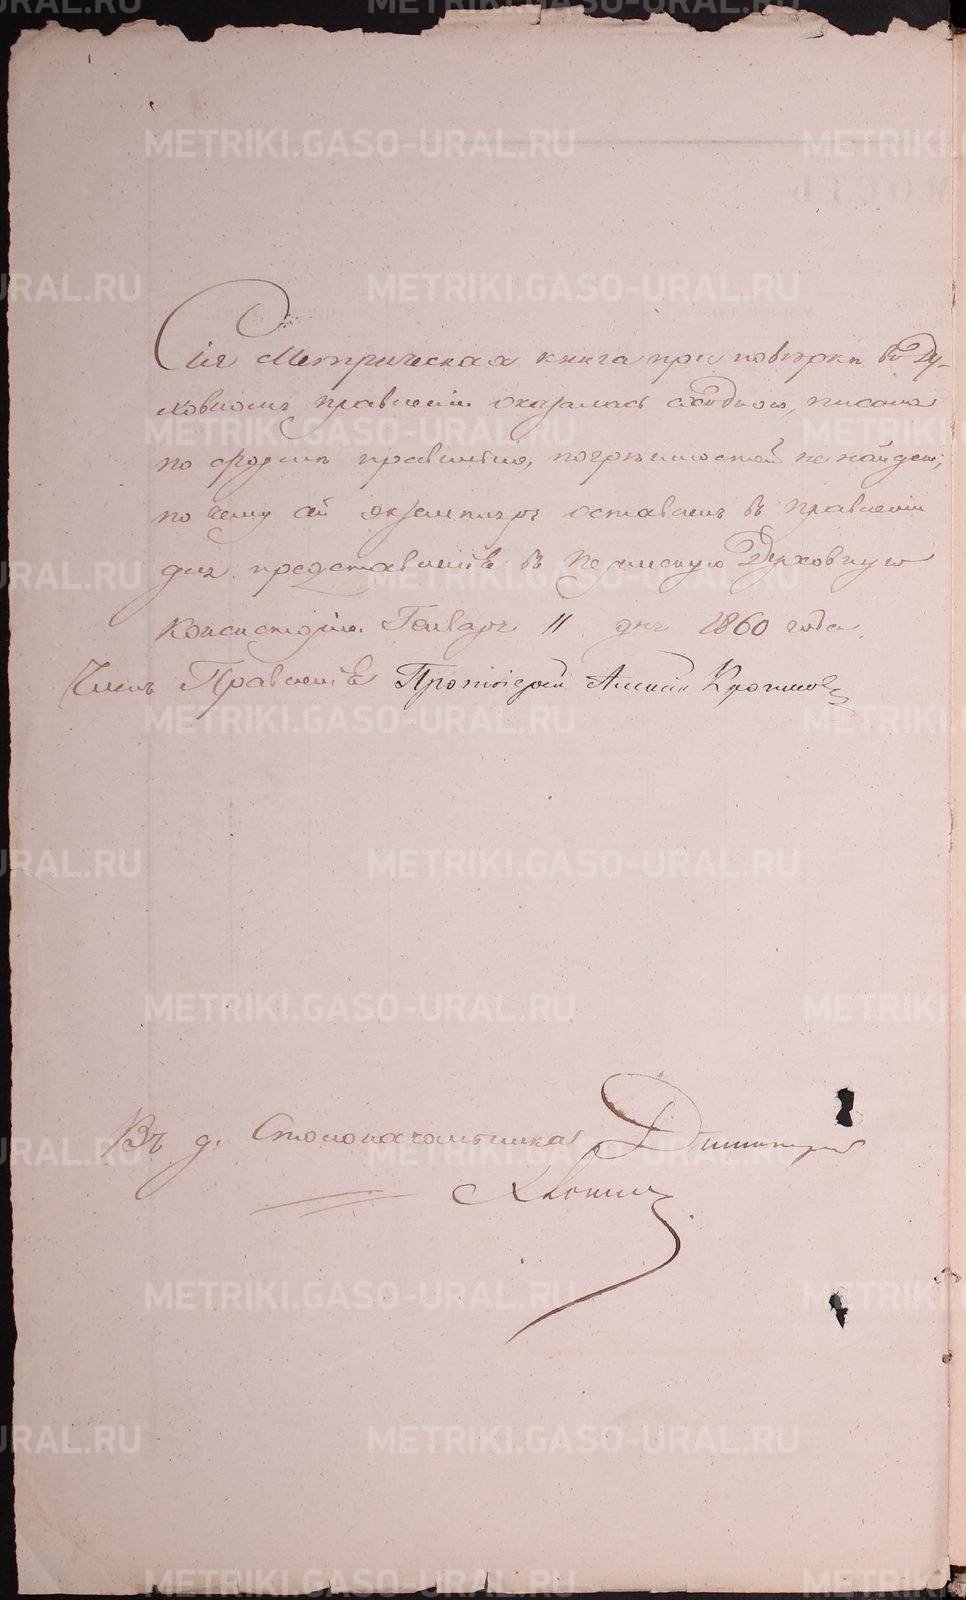 Сія Метрическая книга при повѣркѣ въ Ду-
ховномъ правленіи оказалась сходною, писана
по формѣ правильно, погрѣшностей не найдено,
по чему сей экземпляръ оставленъ въ правленіи
для представленія въ Пермскую Духовную
Консисторію. Генваря 11 дня 1860 года.
Членъ Правленія Протоіерей
Въ д. Столоначальника Димитрій
METRIKI.GASO-URAL.RU